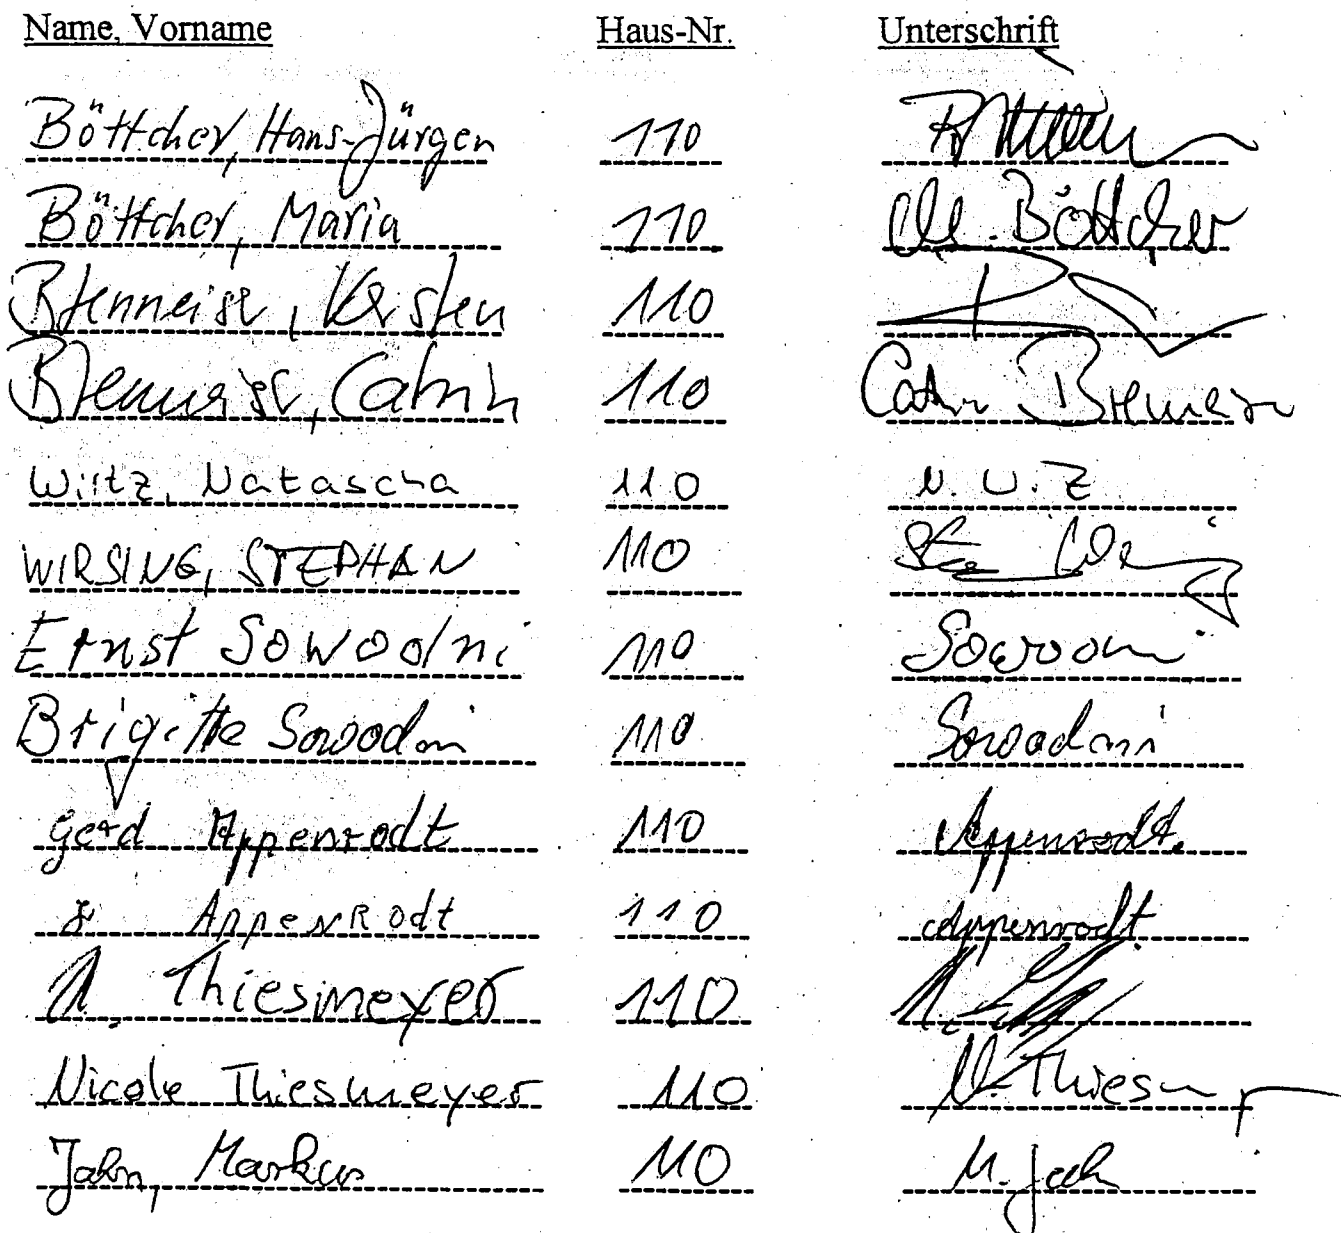 Name, Vorname Haus-Nr. Unterschrift
Böttcher, Hans-Jürgen 110
Böttcher, Maria 110 M. Böttcher
Brenneise, Kersten 110
Brenneise, Catrin 110 Catrin Brenneise
Wirtz, Natascha 110 N. W. Z
WIRSING, STEPHAN 110
Ernst Sowodni 110 Sowodni
Brigitte Sowodni 110 Sowodni
Gerd Appenrodt 110 Appenrodt.
Appenrodt 110 Appenrodt
Thiesmeyer 110
Nicole Thiesmeyer 110 N. Thiesm
Jahn, Markus 110 M. Jahn